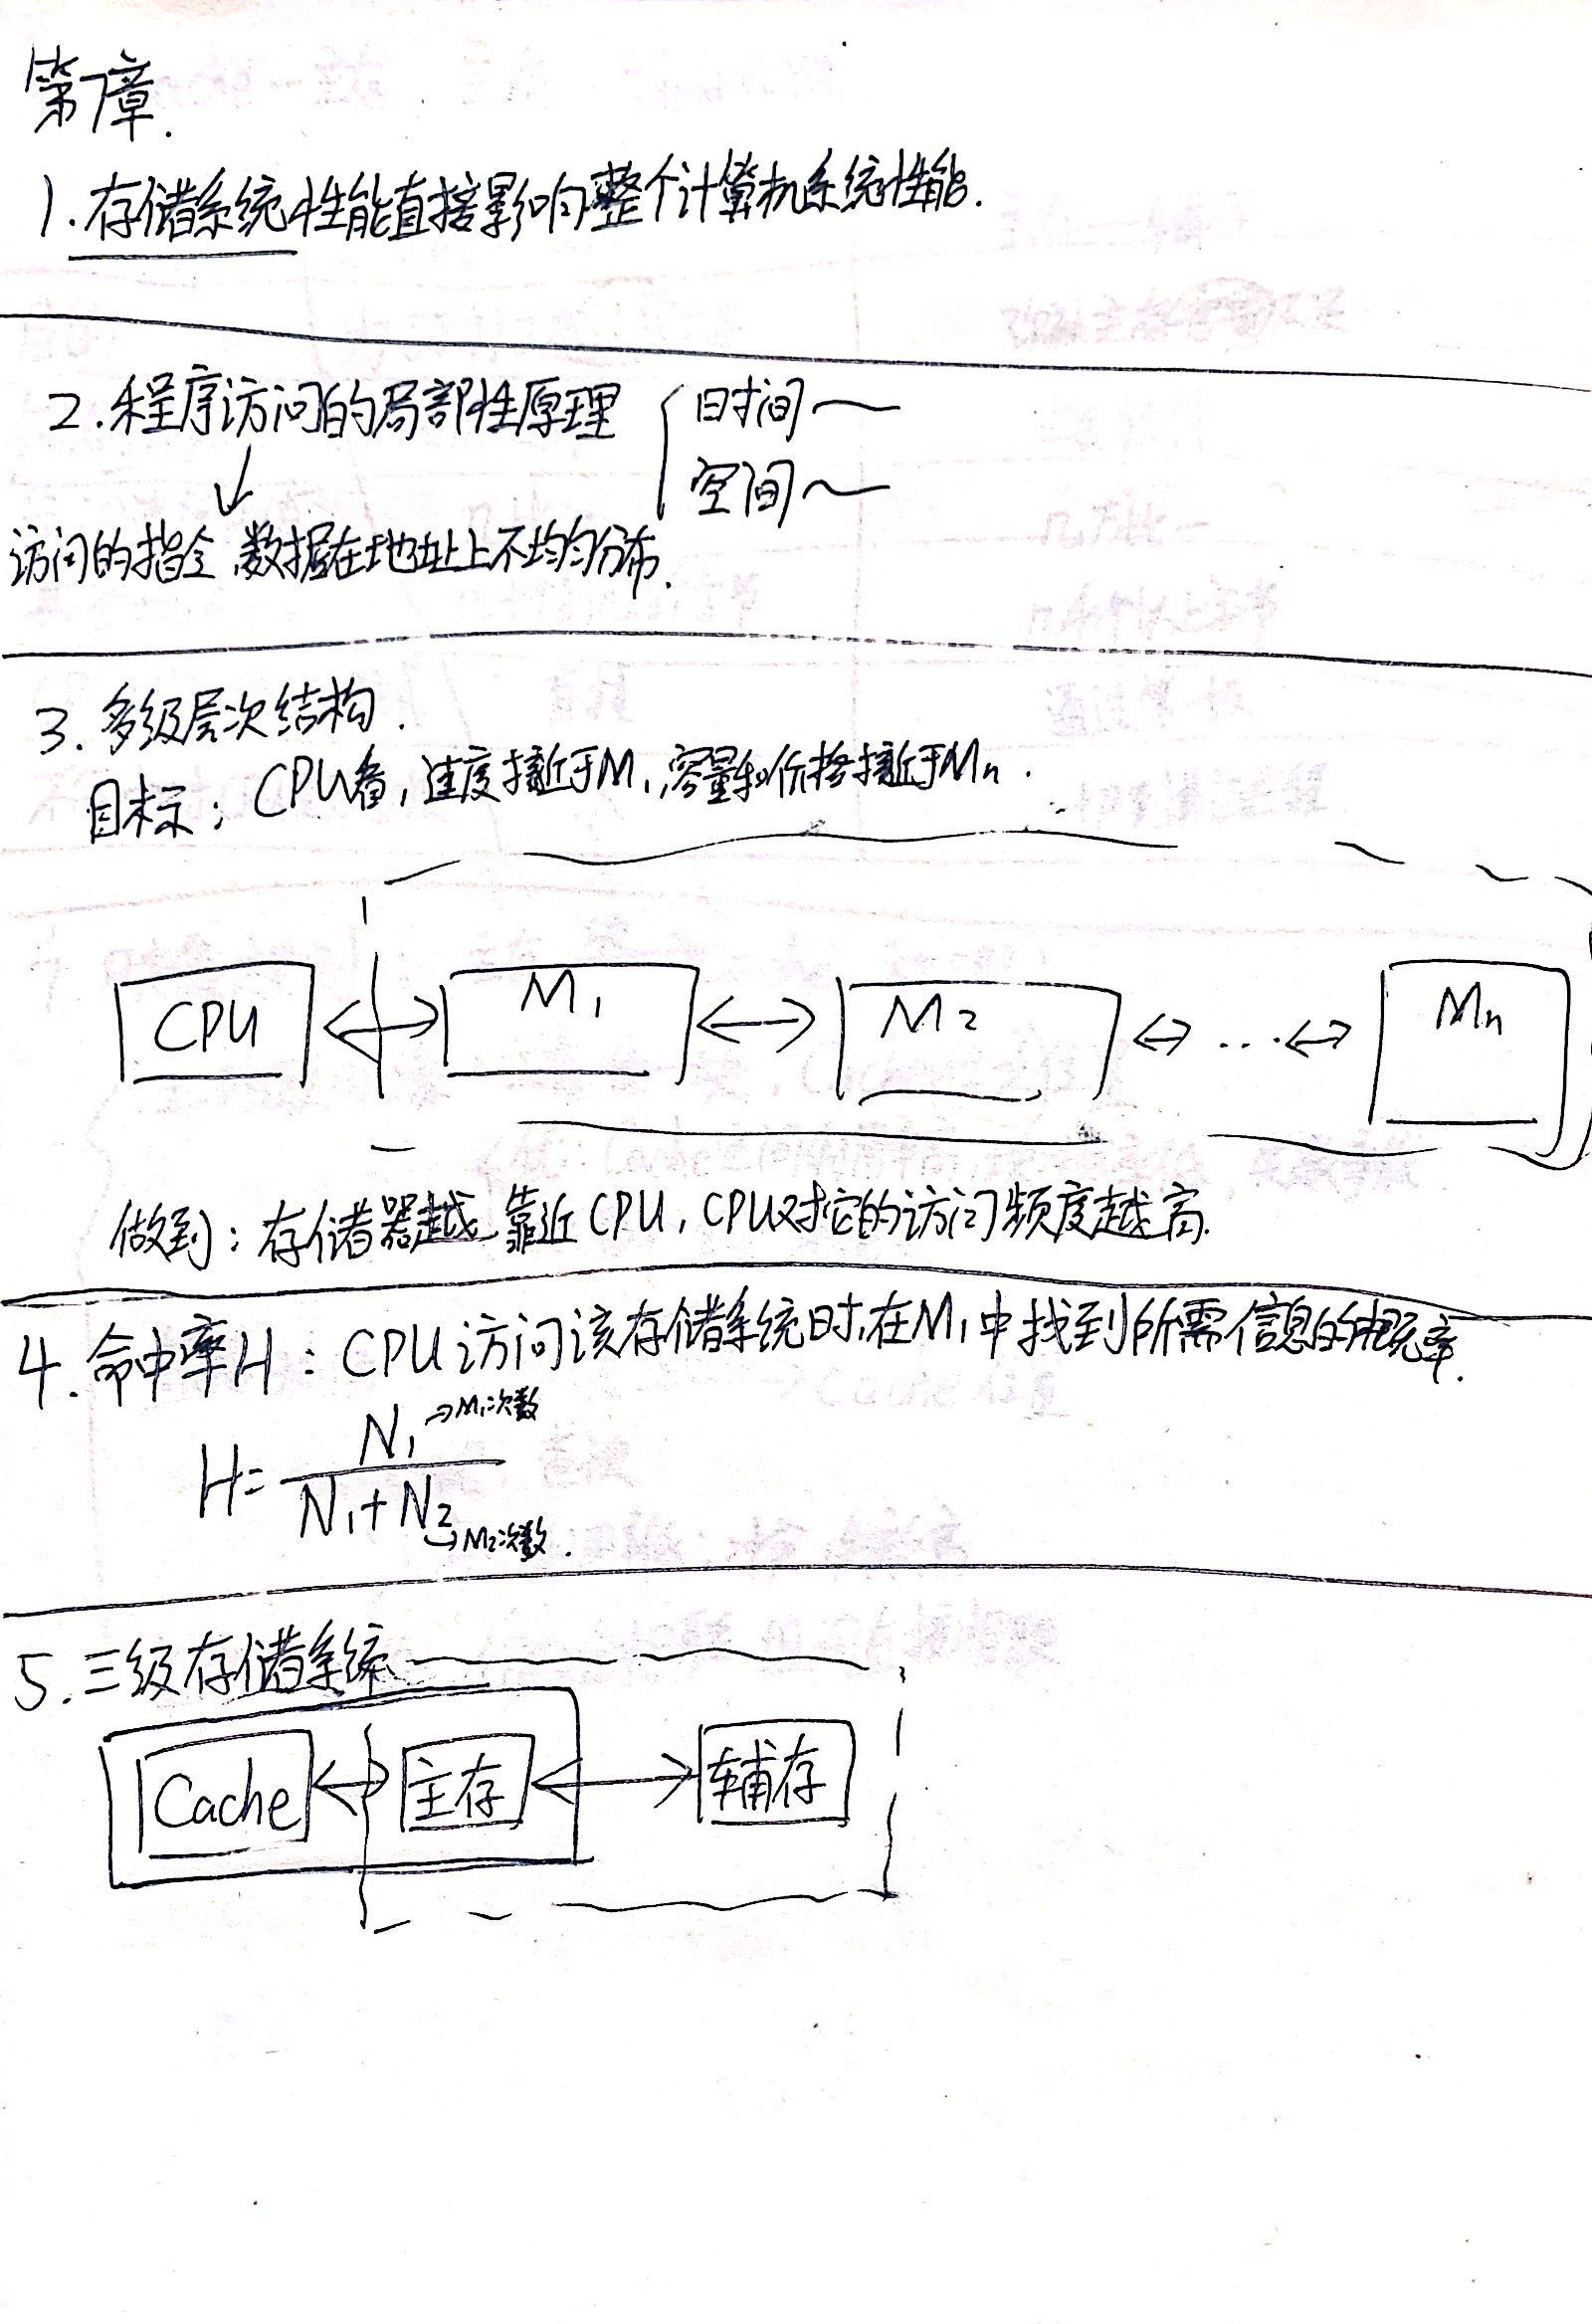 第7章.
1.存储系统性能直接影响整个计算机系统性能.
2.程序访问的局部性原理 { 时间～
空间～
↓
访问的指令、数据在地址上不均匀分布.
3.多级层次结构.
目标:CPU看,速度接近于M₁,容量和价格接近于Mn.
CPU ↔ M₁ ↔ M₂ ↔ ... ↔ Mn
做到:存储器越靠近CPU,CPU对它的访问频度越高.
4.命中率H:CPU访问该存储系统时,在M₁中找到所需信息的概率.
N₁→M₁次数
H=
N₁+N₂→M₂次数.
5.三级存储系统
Cache ↔ 主存 ↔ 辅存